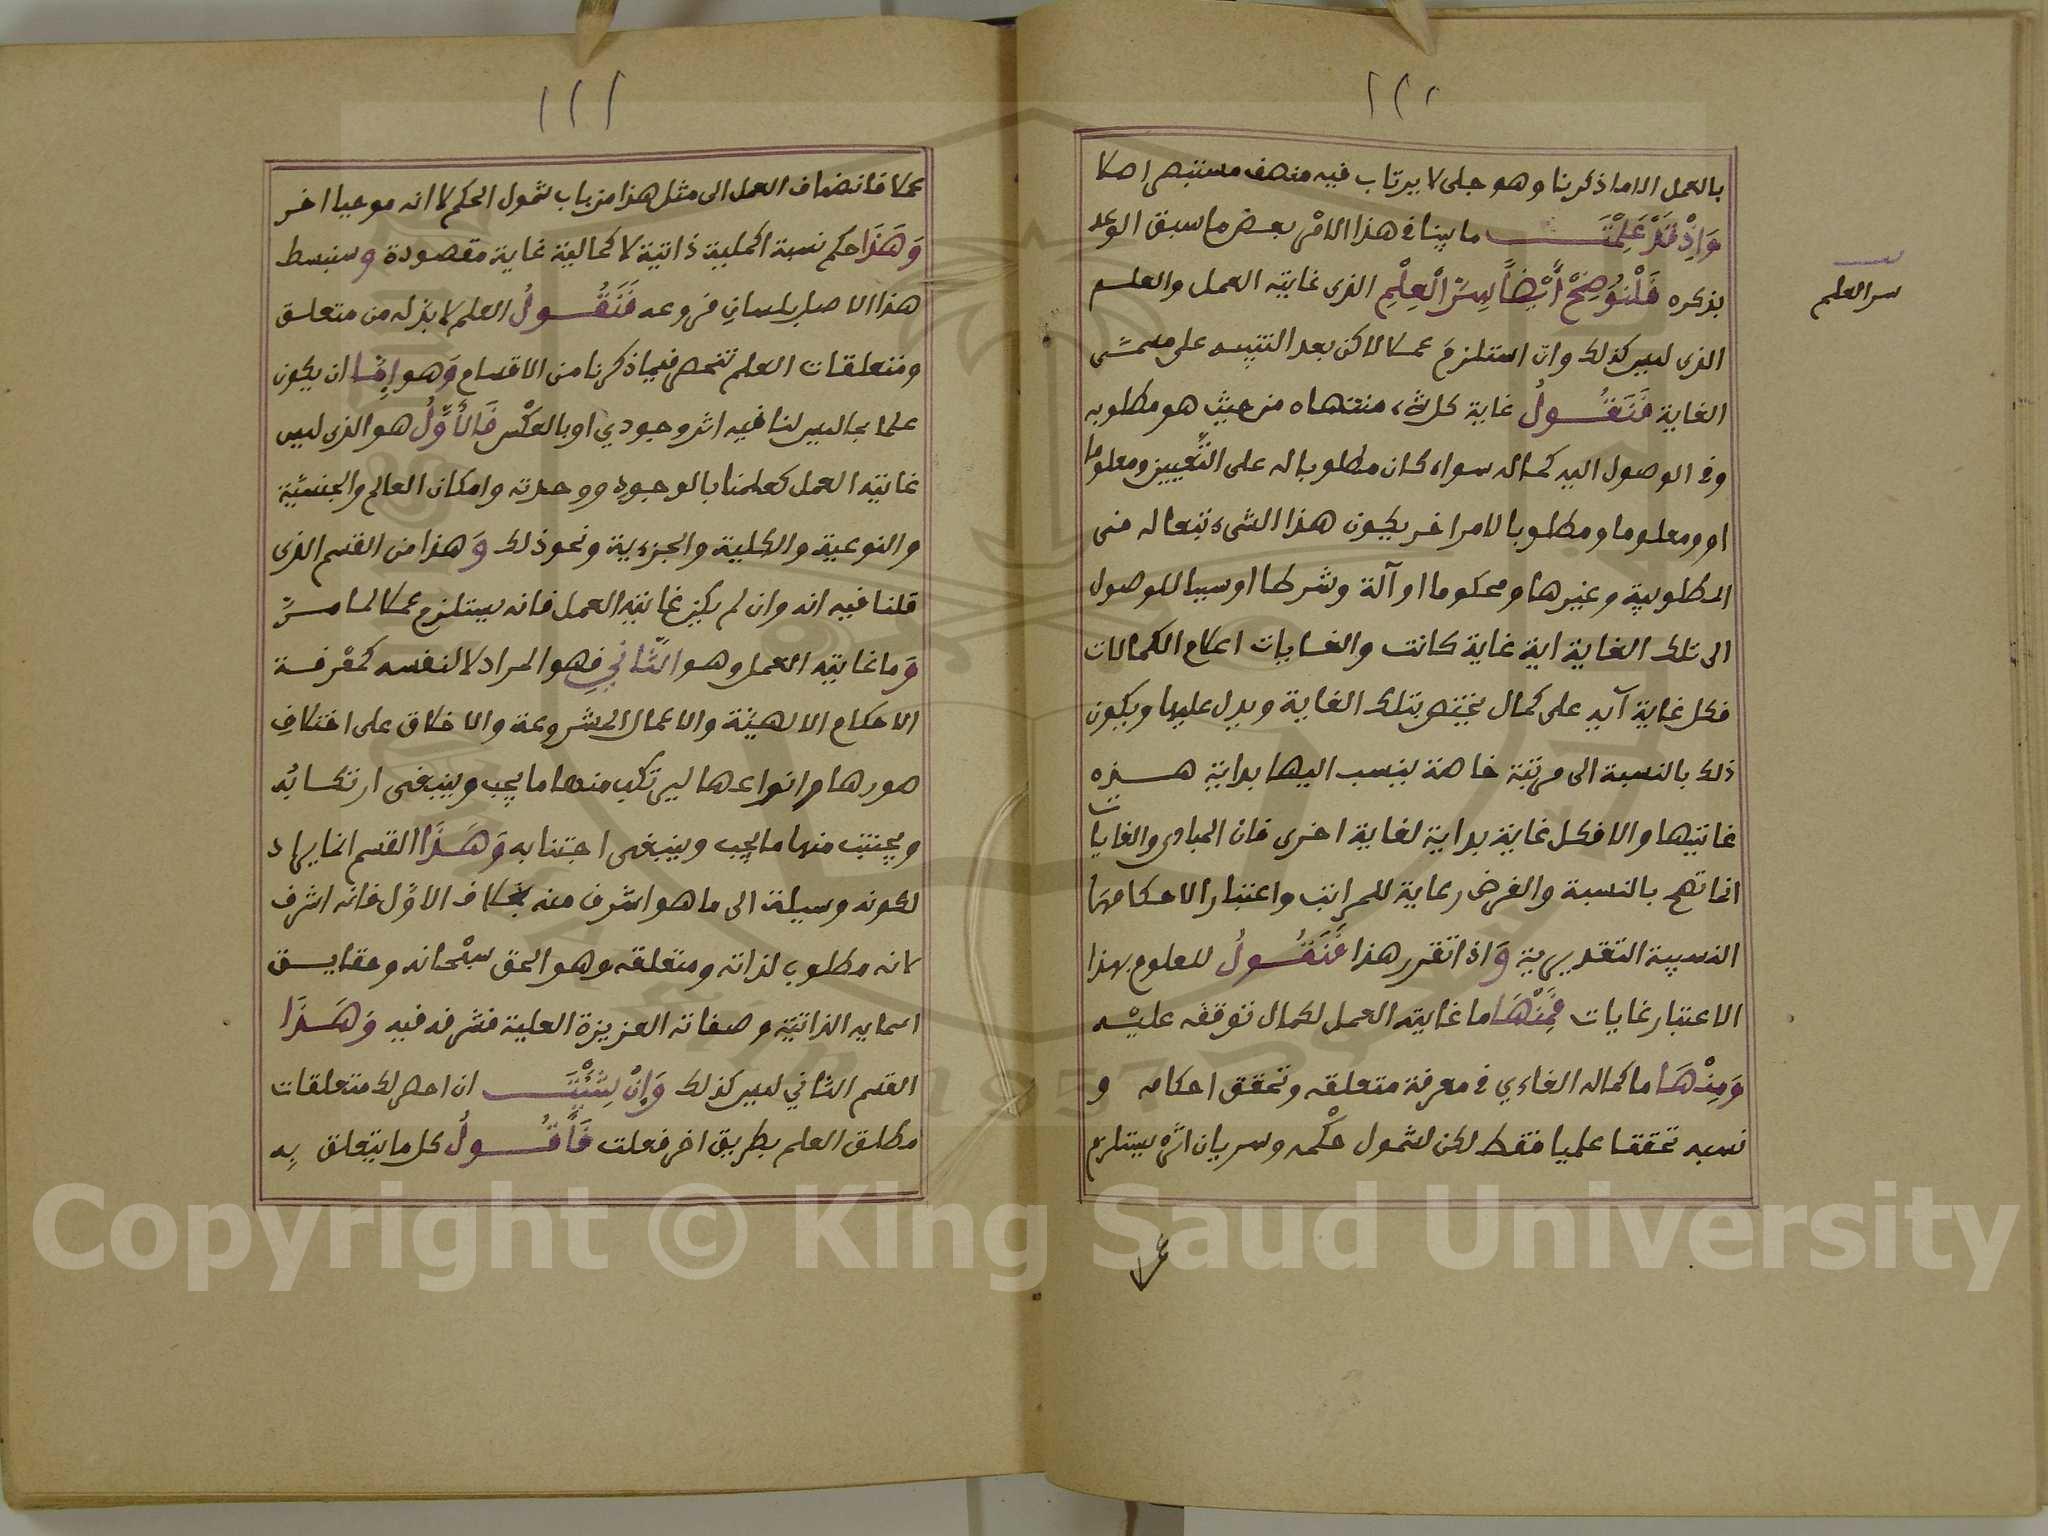 ١١٠
بالعمل الا ما ذكرنا وهو جلى لا يرتاب فيه منصف مستبصر اصلا
وَاِذْ قَدْ عَلِمْتَ ما بينا فى هذا الامر بعض ما سبق الوعد
بذكره فَلْنُوضِحْ أَيْضاً سِرّ الْعِلْمِ الذى غايته العمل والعلم
الذى ليس كذلك وان استلزمَ عملا لاكن بعد التنبيه على مسمّى
الغاية فَنَقُولُ غاية كل شىء منتهاه من حيث هو مطلوبه
وفى الوصول اليه كماله سواء كان مطلوبا له على التّعيين ومعلوما
او ومعلوما ومطلوبا لامر اخر يكون هذا الشىء تبعا له فى
المطلوبية وغيرها ومحكوما او آلة وشرطا او سببا للوصول
الى تلك الغاية اية غاية كانت والغايات اعلام الكمالات
فكل غاية آية على كمال يختص بتلك الغاية ويدل عليها ويكون
ذلك بالنسبة الى مرتبة خاصة ينسب اليها بداية هذه
غايتها والا فكل غاية بداية لغاية اخرى فان المبادى والغايات
انما تتصم بالنسبة والفرض رعاية للمراتب واعتبار الاحكامها
النسبية التقديرية وَاذا تقرر هذا فَنَقُولُ للعلوم بهذا
الاعتبار غايات فَمِنْهَا ما غايته العمل لكمال توقفه عليْه
وَمِنْهَا ما كماله الغاءي فى معرفة متعلقه وتحقق احكامه و
نسبه تحققا علميا فقط لكن لشمول حكْمه وسريان اثره يستلزم
سر العلم
١١١
عملا فانضاف العمل الى مثل هذا من باب شمول الحكم لا انه موجبا اخر
وَهَذَا حكم نسبة اكملية ذاتية لا كمالية غاية مقصودة وسنبسط
هذا الاصل بلسان فروعه فَنَقُولُ العلم لا بدّ له من متعلق
ومتعلقات العلم تنحصر فيما ذكرنا من الاقسام وَهو اِمّا ان يكون
علما بما ليس لنا فيه اثر وجودي او بالعكْس فَالأَوَّلُ هو الذى ليس
غايته العمل كعلمنا بالوجود ووحدته وامكان العالم والجنسيّة
والنوعية والكلية والجزءية ونحو ذلك وَهذا من القسم الذى
قلنا فيه انه وان لم يكن غايته العمل فانه يستلزم عملا لما مرّ
وَما غايته العمل وهو الثّانِي فهو المراد لا لنفسه كمعْرفة
الاحكام الالهيّة والاعمال المشروعة والاخلاق على اختلاف
صورها وانواعها ليرتكب منها ما يجب وينبغى ارتكابُه
ويجتنب منها ما يجب وينبغى اجتنابه وَهَذَا القسم انما يراد
لكونه وسيلة الى ما هو اشرف منه بخلاف الاوّل فانه اشرف
لانه مطلوب لذاته ومتعلقه وهو الحق سبْحانه وحقايق
اسمايه الذاتيّة وصفاته العزيزة العلية فشرفه فيه وَهَذَا
القسم الثاني ليس كذلك وَاِنْ شِئْتَ ان احصر لك متعلقات
مطلق العلم بطريق اخر فعلت فَأَقُولُ كل ما يتعلق بِه
Copyright © King Saud University
1957